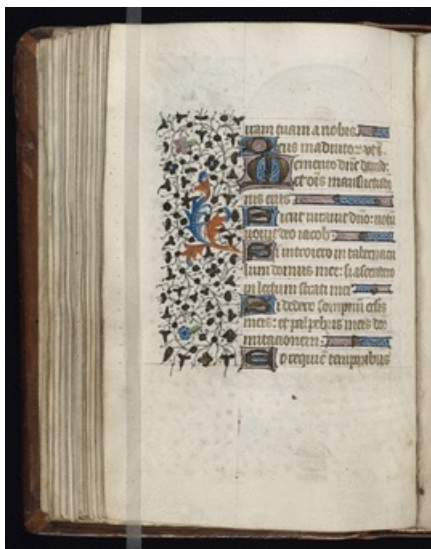 iram tuam a nobis.
Deus in adiuto.
Memento dñe dauid:
et oĩs mansuetudi
nis eius
Sicut iurauit dño: uotũ
uouit deo iacob:
Si introiero in tabernacu
lum domus mee: si ascendero
in lectum strati mei
Si dedero sompnũ oclis
meis: et palpebris meis dor
mitacionem:
Et requiẽ temporibus